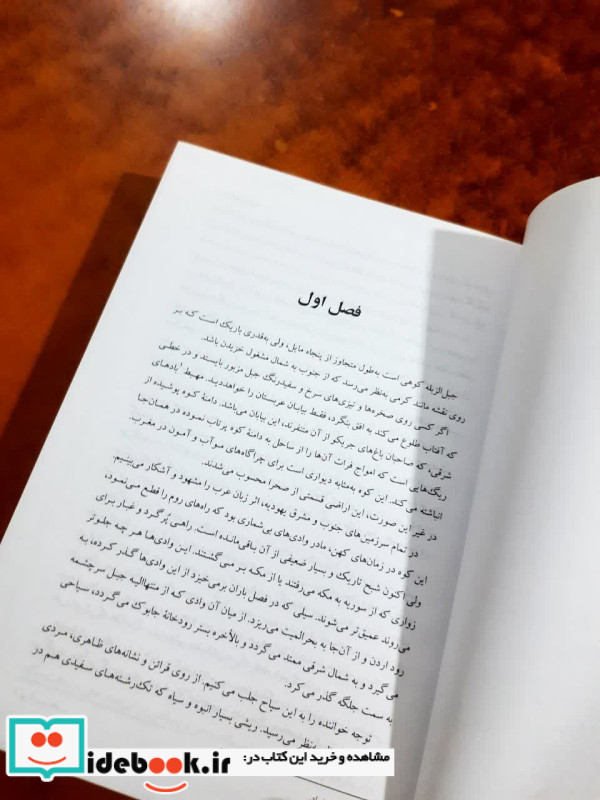 فصل اول
جبل‌الزبله کوهی است به‌طول متجاوز از پنجاه مایل، ولی به‌قدری باریک است که بر
روی نقشه مانند کرمی به‌نظر می‌رسد که از جنوب به شمال مشغول خزیدن باشد.
اگر کسی روی صخره‌ها و تیزی‌های سرخ و سفیدرنگ جبل مزبور بایستد و در خطی
که آفتاب طلوع می‌کند به افق بنگرد، فقط بیابان عربستان را خواهددید. مهبط 'بادهای
شرقی، که صاحبان باغ‌های جریکو از آن متنفرند، این بیابان می‌باشد. دامنهٔ کوه پوشیده از
ریگ‌هایی است که امواج فرات آن‌ها را از ساحل به دامنهٔ کوه پرتاب نموده در همان‌جا
انباشته می‌کند. این کوه به‌مثابه دیواری است برای چراگاه‌های موآب و آمون در مغرب.
در غیر این صورت، این اراضی قسمتی از صحرا محسوب می‌شدند.
در تمام سرزمین‌های جنوب و مشرق یهودیه، اثر زبان عرب را مشهود و آشکار می‌بینیم.
این کوه در زمان‌های کهن، مادر وادی‌های بی‌شماری بود که راه‌های روم را قطع می‌نمود،
ولی اکنون شبح تاریک و بسیار ضعیفی از آن باقی‌مانده است. راهی پُرگرد و غبار برای
زواری که از سوریه به مکه می‌رفتند یا از مکه بر می‌گشتند. این وادی‌ها هر چه جلوتر
می‌روند عمیق‌تر می‌شوند. سیلی که در فصل باران برمی‌خیزد از این وادی‌ها گذر کرده، به
رود اردن و از آن‌جا به بحرالمیت می‌ریزد. از میان آن وادی که از منتهاالیه جبل سرچشمه
می‌گیرد و به شمال شرقی ممتد می‌گردد و بالأخره بستر رودخانهٔ جابوک می‌گردد، سیاحی
به سمت جلگه گذر می‌کرد.
توجه خواننده را به این سیاح جلب می‌کنیم. از روی قرائن و نشانه‌های ظاهری، مردی
به‌نظر می‌رسید. ریشی بسیار انبوه و سیاه که تک‌رشته‌های سفیدی هم در
مشاهده و خرید این کتاب در:
idebook.ir